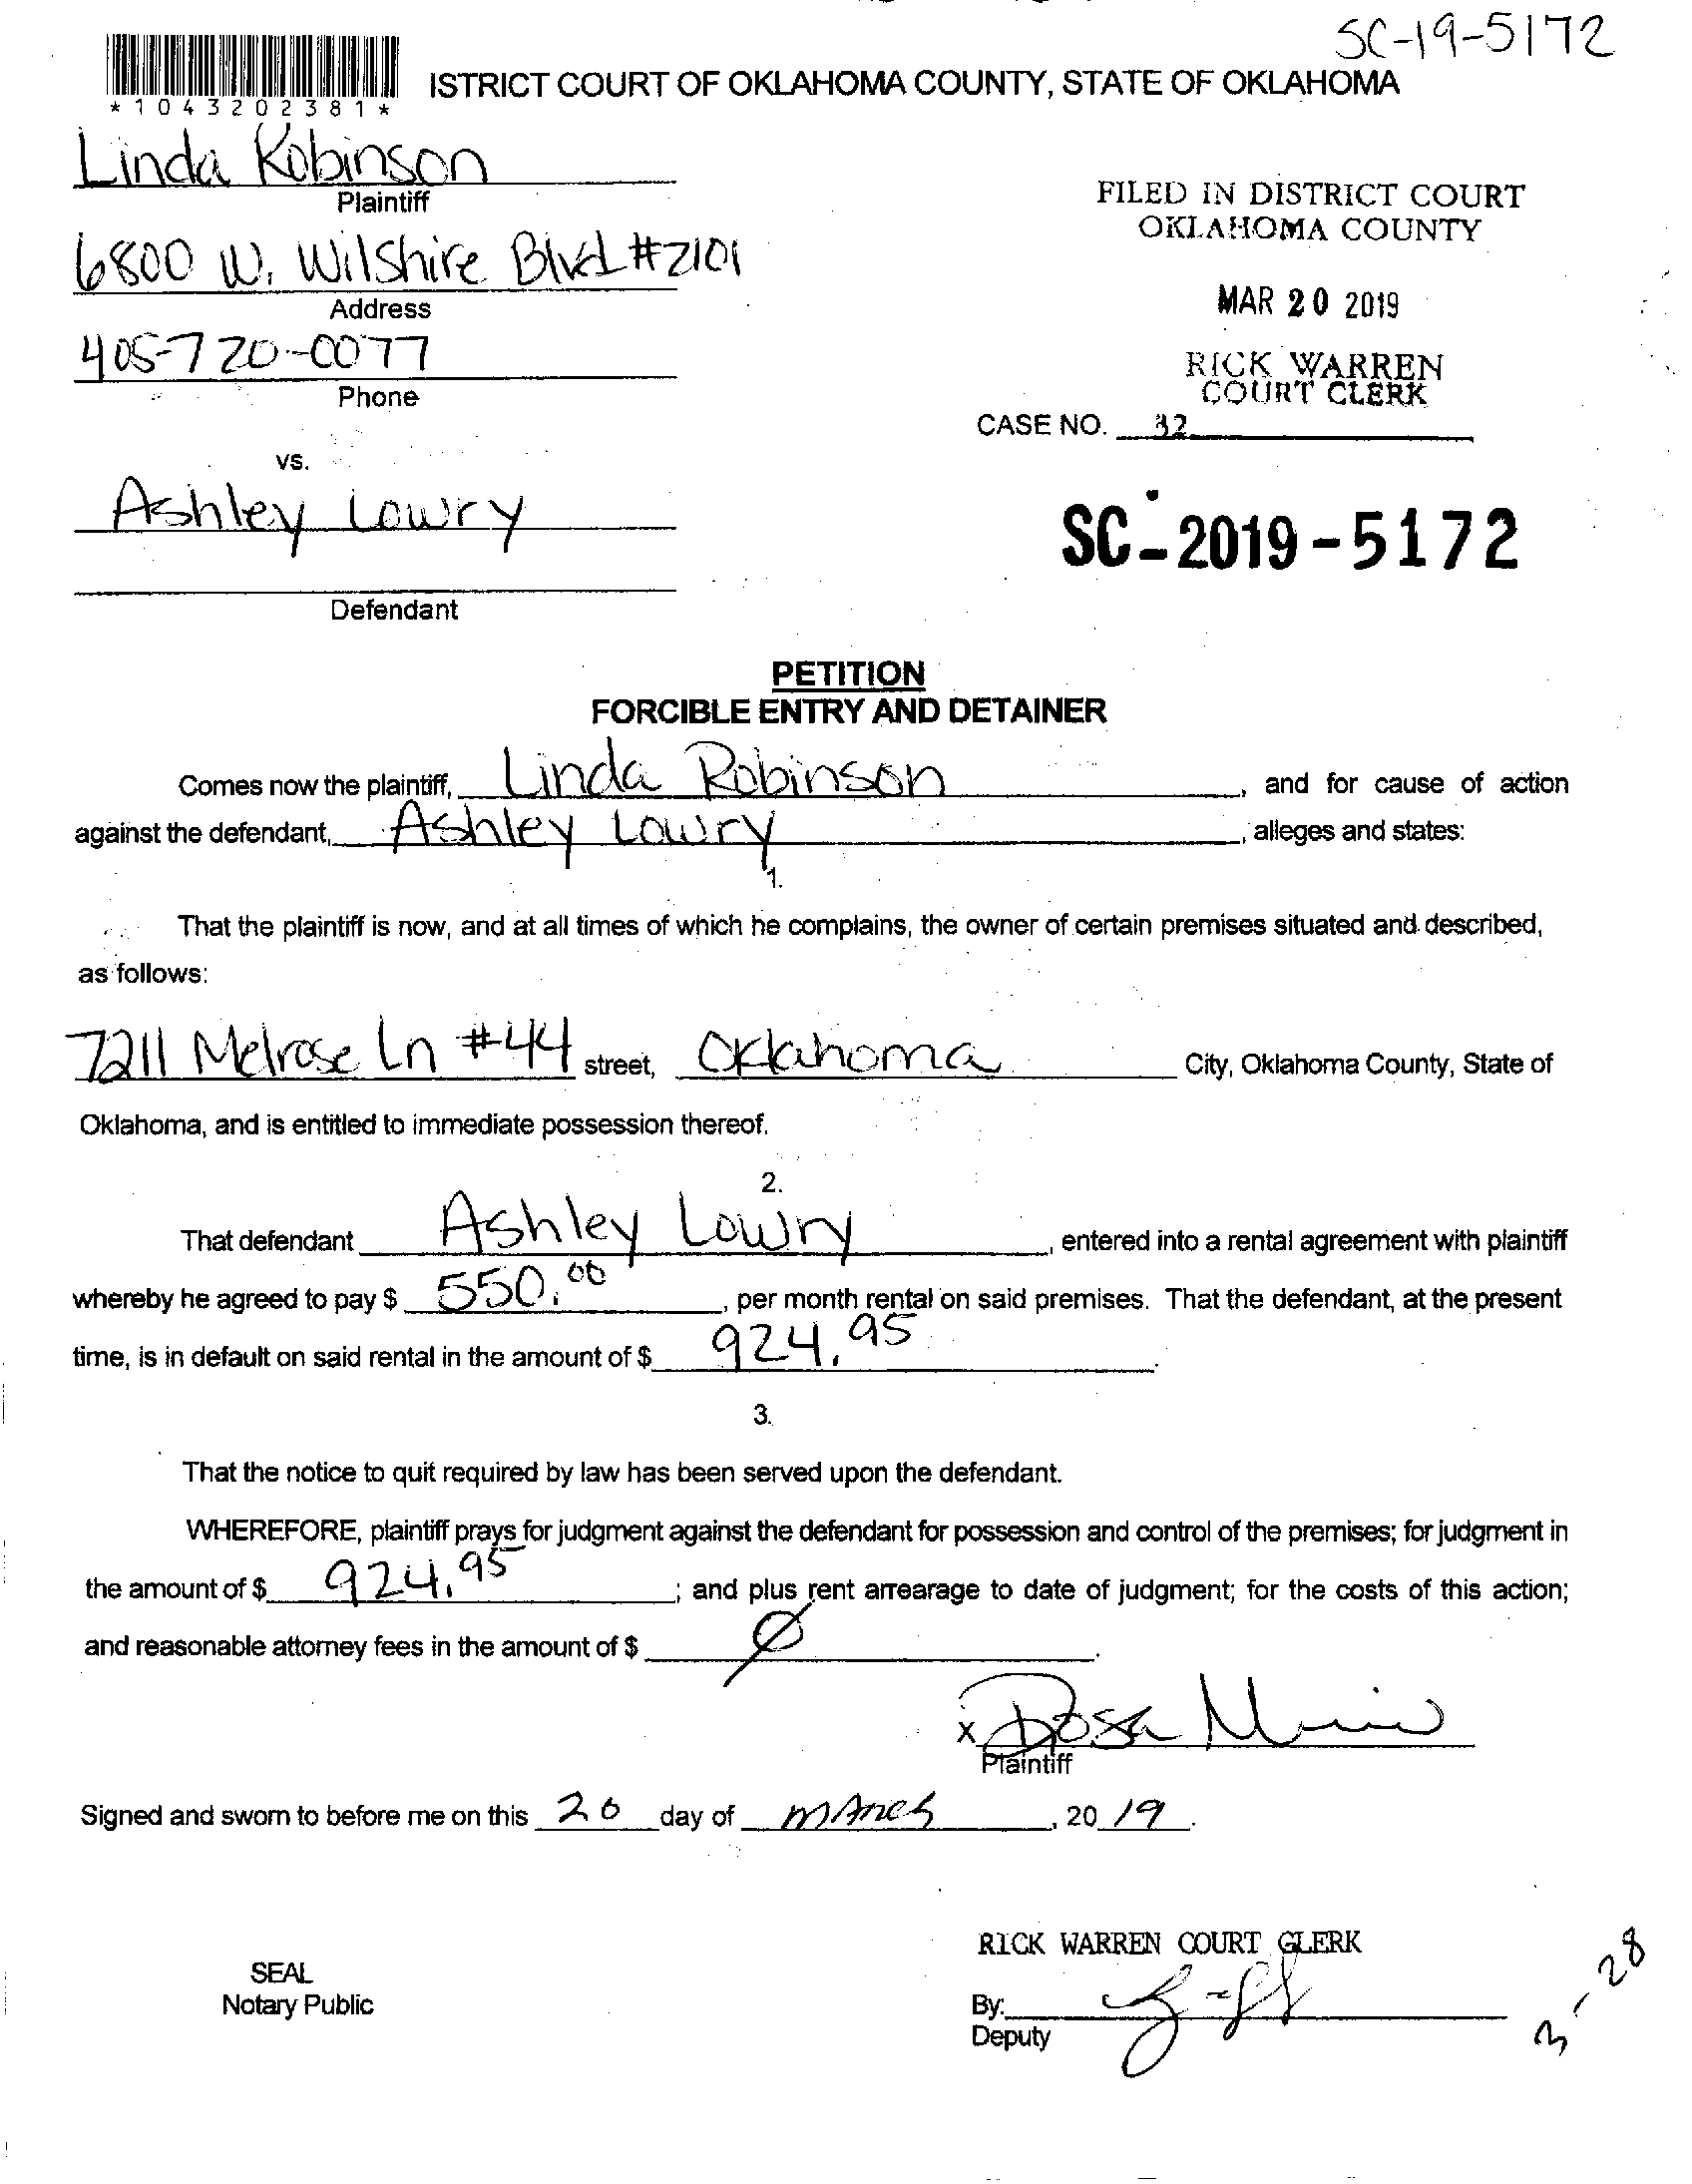 SC-19-5172
*1043202381*
ISTRICT COURT OF OKLAHOMA COUNTY, STATE OF OKLAHOMA
Linda Robinson
Plaintiff
6800 W. Wilshire Blvd #2101
Address
405-720-0077
Phone
FILED IN DISTRICT COURT
OKLAHOMA COUNTY
MAR 20 2019
RICK WARREN
COURT CLERK
CASE NO. 32
vs.
Ashley Lowry
SC-2019-5172
Defendant
PETITION
FORCIBLE ENTRY AND DETAINER
Comes now the plaintiff, Linda Robinson, and for cause of action
against the defendant, Ashley Lowry, alleges and states:
1.
That the plaintiff is now, and at all times of which he complains, the owner of certain premises situated and described,
as follows:
7211 Melrose Ln #44 street, Oklahoma City, Oklahoma County, State of
Oklahoma, and is entitled to immediate possession thereof.
2.
That defendant Ashley Lowry, entered into a rental agreement with plaintiff
whereby he agreed to pay $ 550.00, per month rental on said premises. That the defendant, at the present
time, is in default on said rental in the amount of $ 924.95.
3.
That the notice to quit required by law has been served upon the defendant.
WHEREFORE, plaintiff prays for judgment against the defendant for possession and control of the premises; for judgment in
the amount of $ 924.95; and plus rent arrearage to date of judgment; for the costs of this action;
and reasonable attorney fees in the amount of $ Ø.
X
Plaintiff
Signed and sworn to before me on this 20 day of March, 20 19.
RICK WARREN COURT CLERK
SEAL
Notary Public
By:
Deputy
3-28